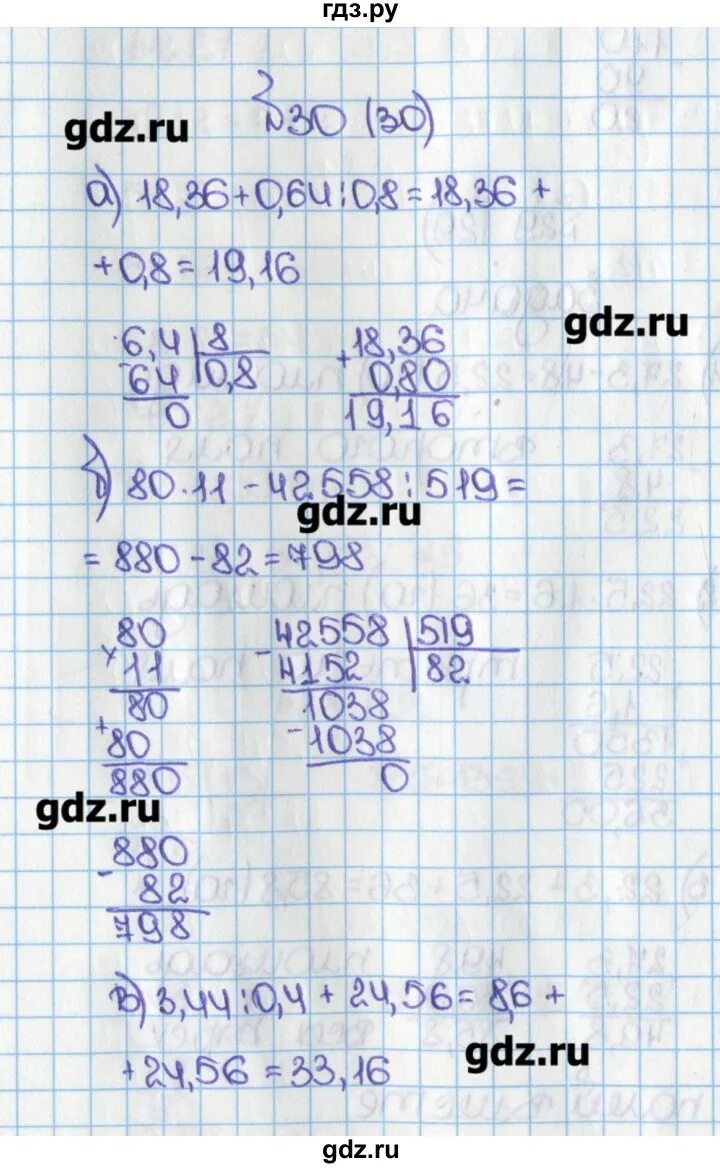 гдз.ру
№30 (30)
gdz.ru
а) 18,36+0,64:0,8=18,36+
+0,8=19,16
gdz.ru
6,4 8
-64 0,8
0
+18,36
0,80
19,16
б) 80·11-42558:519=
gdz.ru
=880-82=798
×80
11
80
+80
880
-42558 519
4152 82
1038
-1038
0
gdz.ru
-880
82
798
в) 3,44:0,4+24,56=8,6+
gdz.ru
+24,56=33,16
gdz.ru